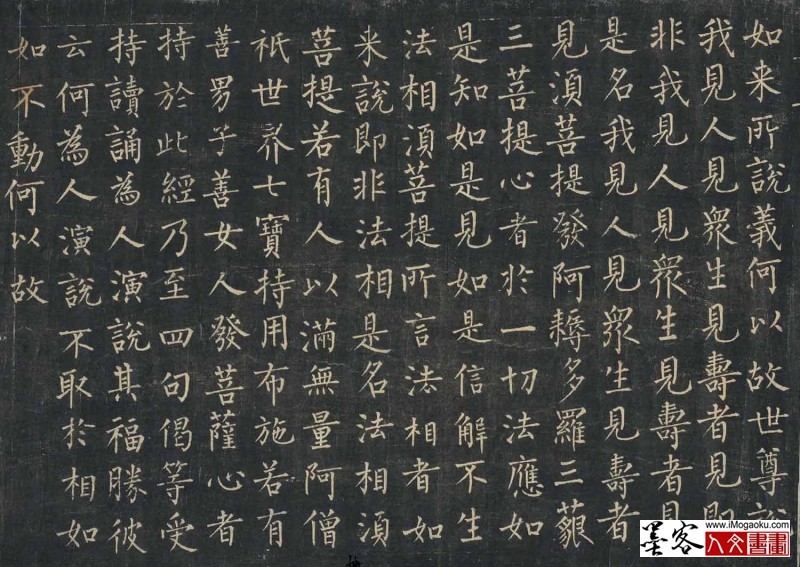 如来所說義何以故世尊說
我見人見衆生見壽者見即
非我見人見衆生見壽者見
是名我見人見衆生見壽者
見湏菩提發阿耨多羅三藐
三菩提心者於一切法應如
是知如是見如是信解不生
法相湏菩提所言法相者如
来說即非法相是名法相湏
菩提若有人以滿無量阿僧
祇世界七寶持用布施若有
善男子善女人發菩薩心者
持於此經乃至四句偈等受
持讀誦為人演說其福勝彼
云何為人演說不取於相如
如不動何以故
墨客
www.iMogaoku.com
人文書畫